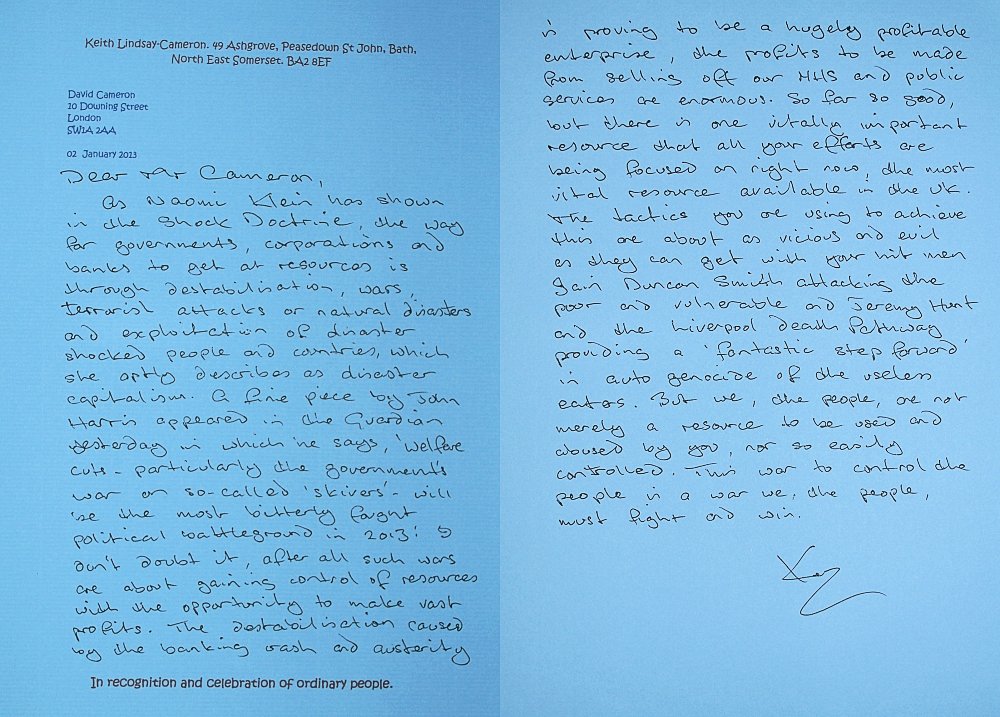 Keith Lindsay-Cameron. 49 Ashgrove, Peasedown St John, Bath,
North East Somerset. BA2 8EF
David Cameron
10 Downing Street
London
SW1A 2AA
02 January 2013
Dear Mr Cameron,
As Naomi Klein has shown
in the Shock Doctrine, the way
for governments, corporations and
banks to get at resources is
through destabilisation, wars,
terrorist attacks or natural disasters
and exploitation of disaster
shocked people and countries, which
she aptly describes as disaster
capitalism. A fine piece by John
Harris appeared in the Guardian
yesterday in which he says, 'welfare
cuts - particularly the government's
war on so-called 'skivers' - will
be the most bitterly fought
political battleground in 2013'. I
don't doubt it, after all such wars
are about gaining control of resources
with the opportunity to make vast
profits. The destabilisation caused
by the banking crash and austerity
In recognition and celebration of ordinary people.
is proving to be a hugely profitable
enterprise, the profits to be made
from selling off our NHS and public
services are enormous. So far so good,
but there is one vitally important
resource that all your efforts are
being focused on right now, the most
vital resource available in the UK.
The tactics you are using to achieve
this are about as vicious and evil
as they can get with your hit men
Iain Duncan Smith attacking the
poor and vulnerable and Jeremy Hunt
and the Liverpool Death Pathway
providing a 'fantastic step forward'
in auto genocide of the useless
eaters. But we, the people, are not
merely a resource to be used and
abused by you, nor so easily
controlled. This war to control the
people is a war we, the people,
must fight and win.